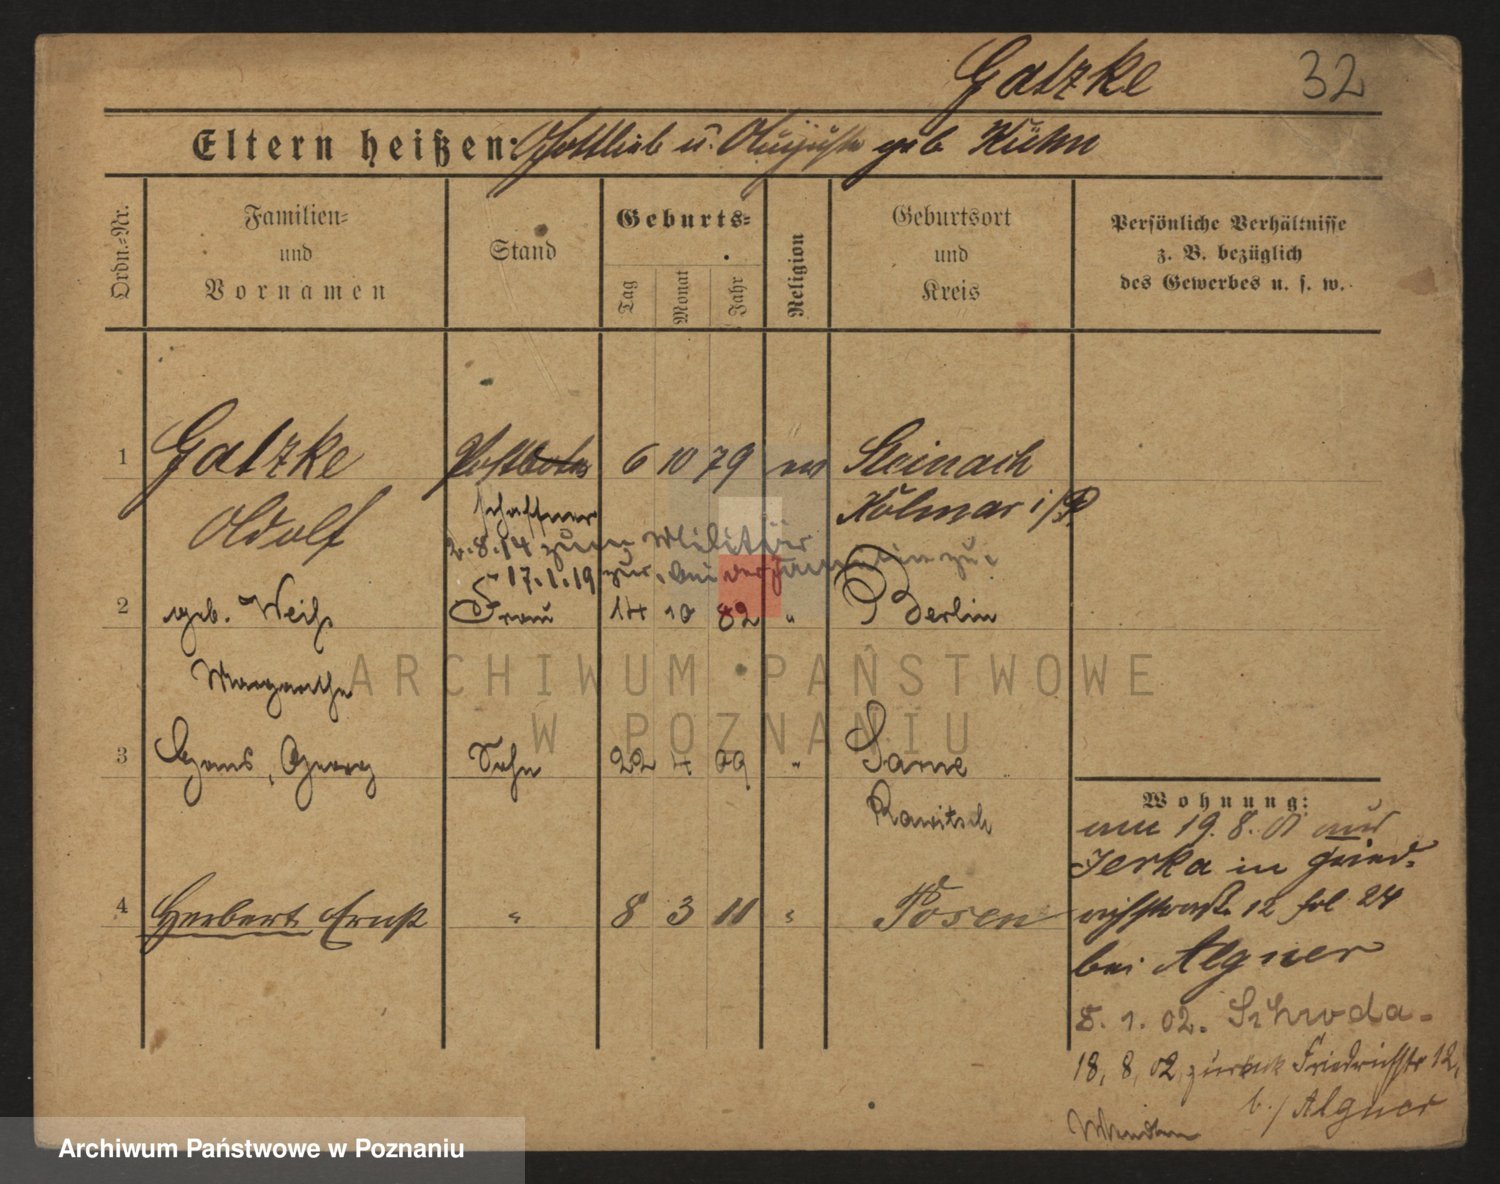 Gatzke 32
Eltern heißen: Gottlieb u. Auguste geb Kühn
Ordn.-Nr.
Familien-
und
Vornamen
Stand
Geburts-
Tag Monat Jahr
Religion
Geburtsort
und
Kreis
Persönliche Verhältnisse
z. B. bezüglich
des Gewerbes u. s. w.
1 Gatzke Postbote 6 10 79 ev Steinach
Adolf schaffner Kolmar i/P
2.8.14 zum Militär
17.1.19 zur. bei der Familie zu.
2 geb. Weiß Frau 14 10 82 " Berlin
Margarethe
3 Hans, Georg Sohn 22 4 09 " Sarne
Rawitsch
4 Herbert Ernst " 8 3 11 " Posen
Wohnung:
am 19.8.01 aus
Jerka in Fried-
richstraße 12 fol 24
bei Algner
8.1.02. Schroda-
18.8.02 zurück Friedrichstr 12,
b./ Algner
ARCHIWUM PAŃSTWOWE
W POZNANIU
Archiwum Państwowe w Poznaniu